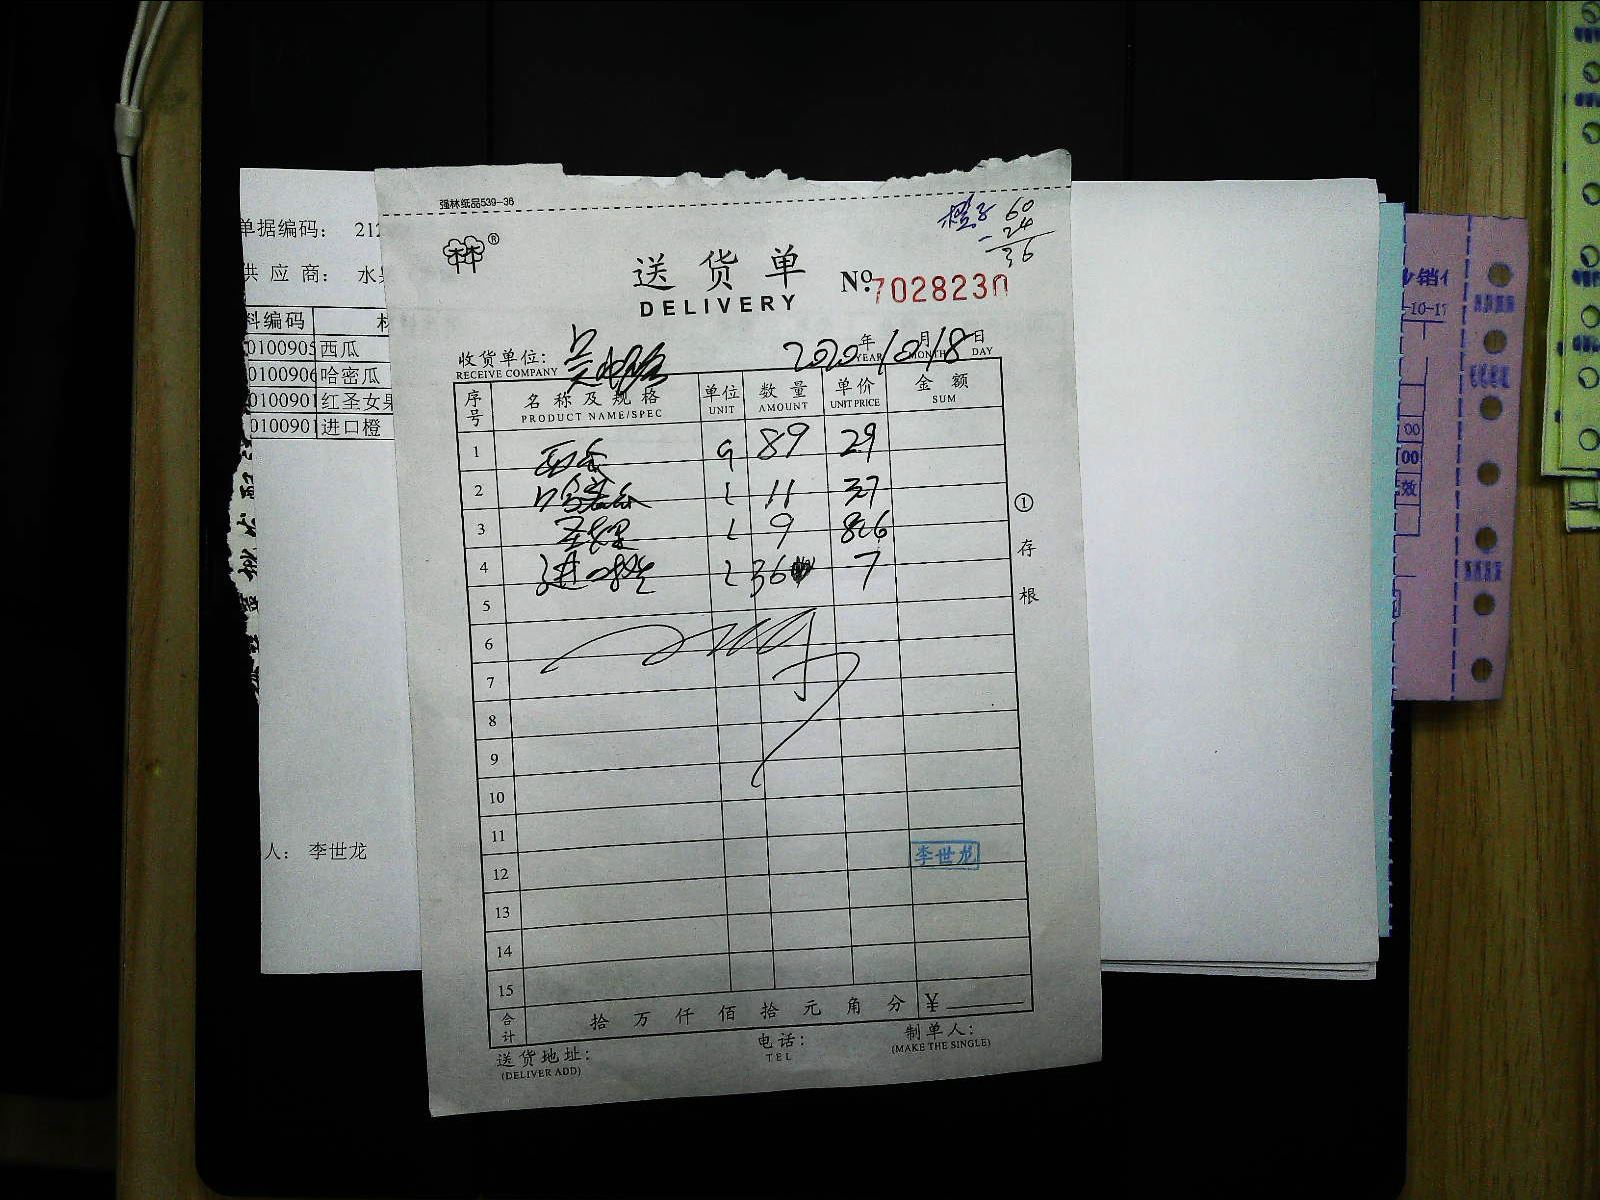 强林纸品539-36
橙子 60
-24
36
林®
送货单
DELIVERY
No. 7028230
收货单位:
RECEIVE COMPANY
2020年10月18日
YEAR MONTH DAY
序号 名称及规格 单位 数量 单价 金额
PRODUCT NAME/SPEC UNIT AMOUNT UNIT PRICE SUM
1 西瓜 89 29
2 哈密瓜 11 37
3 圣女果 9 8.6
4 进口橙 36 7
5
6
7
8
9
10
11
12
13
14
15
李世龙
合计 拾万仟佰拾元角分 ¥
送货地址:
(DELIVER ADD)
电话:
TEL
制单人:
(MAKE THE SINGLE)
①存根
单据编码: 212
供应商: 水
料编码
西瓜
哈密瓜
红圣女果
进口橙
人: 李世龙
-10-17
00
00
效